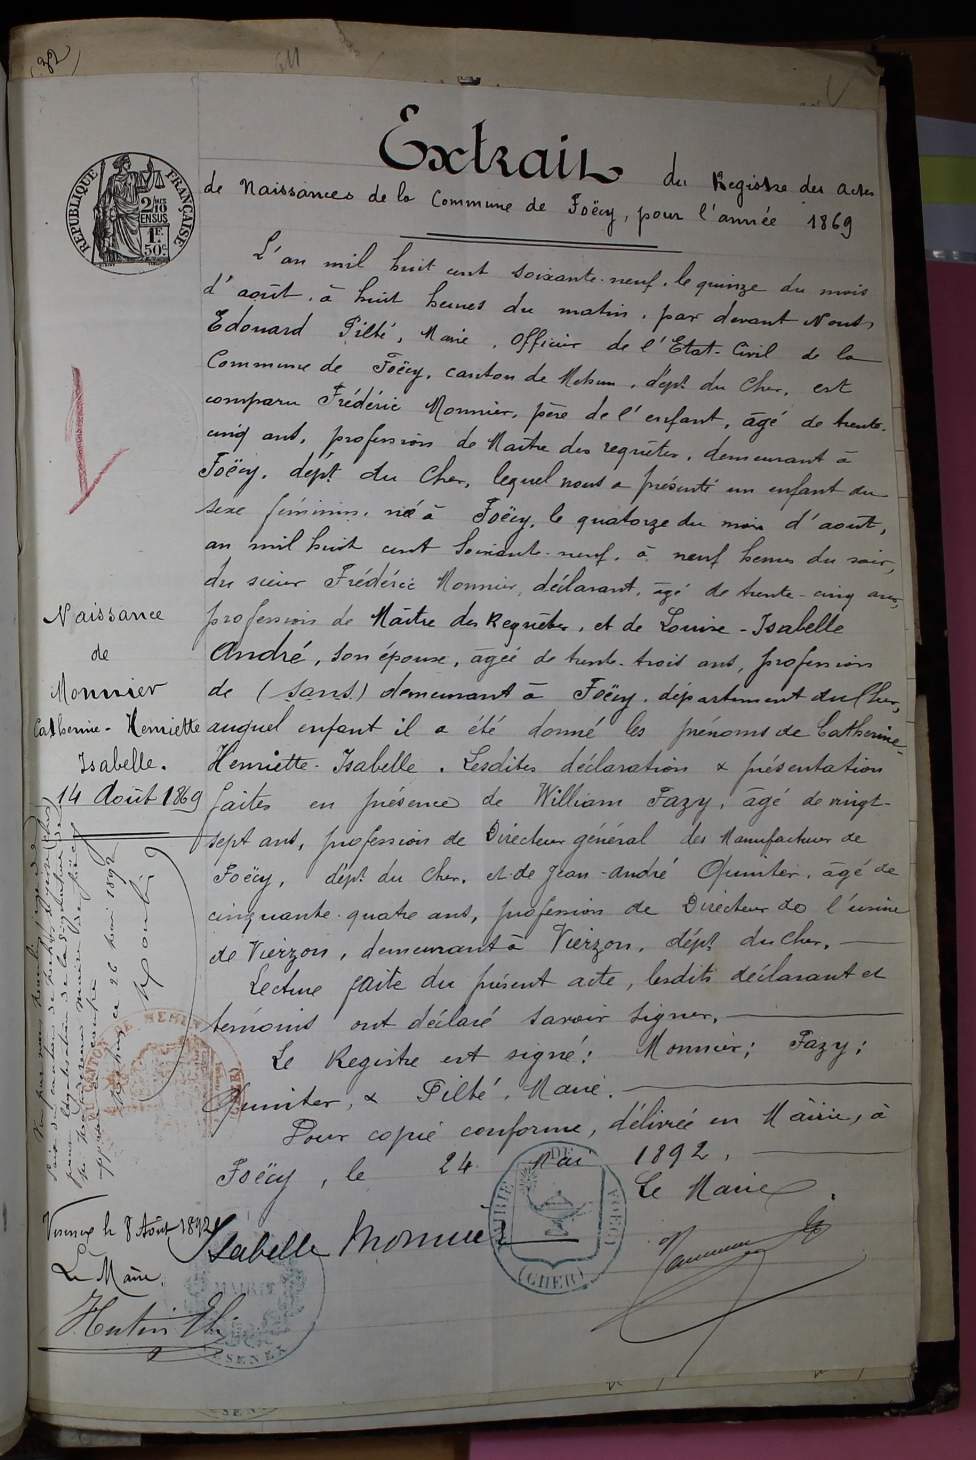 (32)
Extrait
du Registre des actes
de Naissances de la Commune de Foëcy, pour l'année 1869
RÉPUBLIQUE FRANÇAISE
2/10 EN SUS
1F. 50c.
L'an mil huit cent soixante-neuf, le quinze du mois
d'août, à huit heures du matin, par devant Nous,
Edouard Pilté, Maire, Officier de l'Etat-Civil de la
Commune de Foëcy, canton de Mehun, dépt du Cher, est
comparu Frédéric Monnier, père de l'enfant, âgé de trente-
cinq ans, profession de Maître des requêtes, demeurant à
Foëcy, dépt du Cher, lequel nous a présenté un enfant du
sexe féminin, né à Foëcy, le quatorze du mois d'août,
an mil huit cent soixante-neuf, à neuf heures du soir,
du sieur Frédéric Monnier, déclarant, âgé de trente-cinq ans,
profession de Maître des Requêtes, et de Louise-Isabelle
André, son épouse, âgée de trente-trois ans, profession
de (sans) demeurant à Foëcy, département du Cher,
auquel enfant il a été donné les prénoms de Catherine-
Henriette-Isabelle. Lesdites déclaration & présentation
faites en présence de William Fazy, âgé de vingt-
sept ans, profession de Directeur général des Manufactures de
Foëcy, dépt du Cher, et de Jean-André Qumiter, âgé de
cinquante-quatre ans, profession de Directeur de l'usine
de Vierzon, demeurant à Vierzon, dépt du Cher.
Lecture faite du présent acte, lesdits déclarant et
témoins ont déclaré savoir signer.
Le Registre est signé: Monnier; Fazy;
Qumiter, & Pilté, Maire.
Pour copie conforme, délivrée en Mairie, à
Foëcy, le 24 Mai 1892.
Le Maire
Naissance
de
Monnier
Catherine-Henriette
Isabelle.
14 Août 1869
ce 26 mai 1892
MAIRIE DE FOECY
(CHER)
Isabelle Monnier
Versenex le 8 Août 1892
Le Maire,
MAIRIE